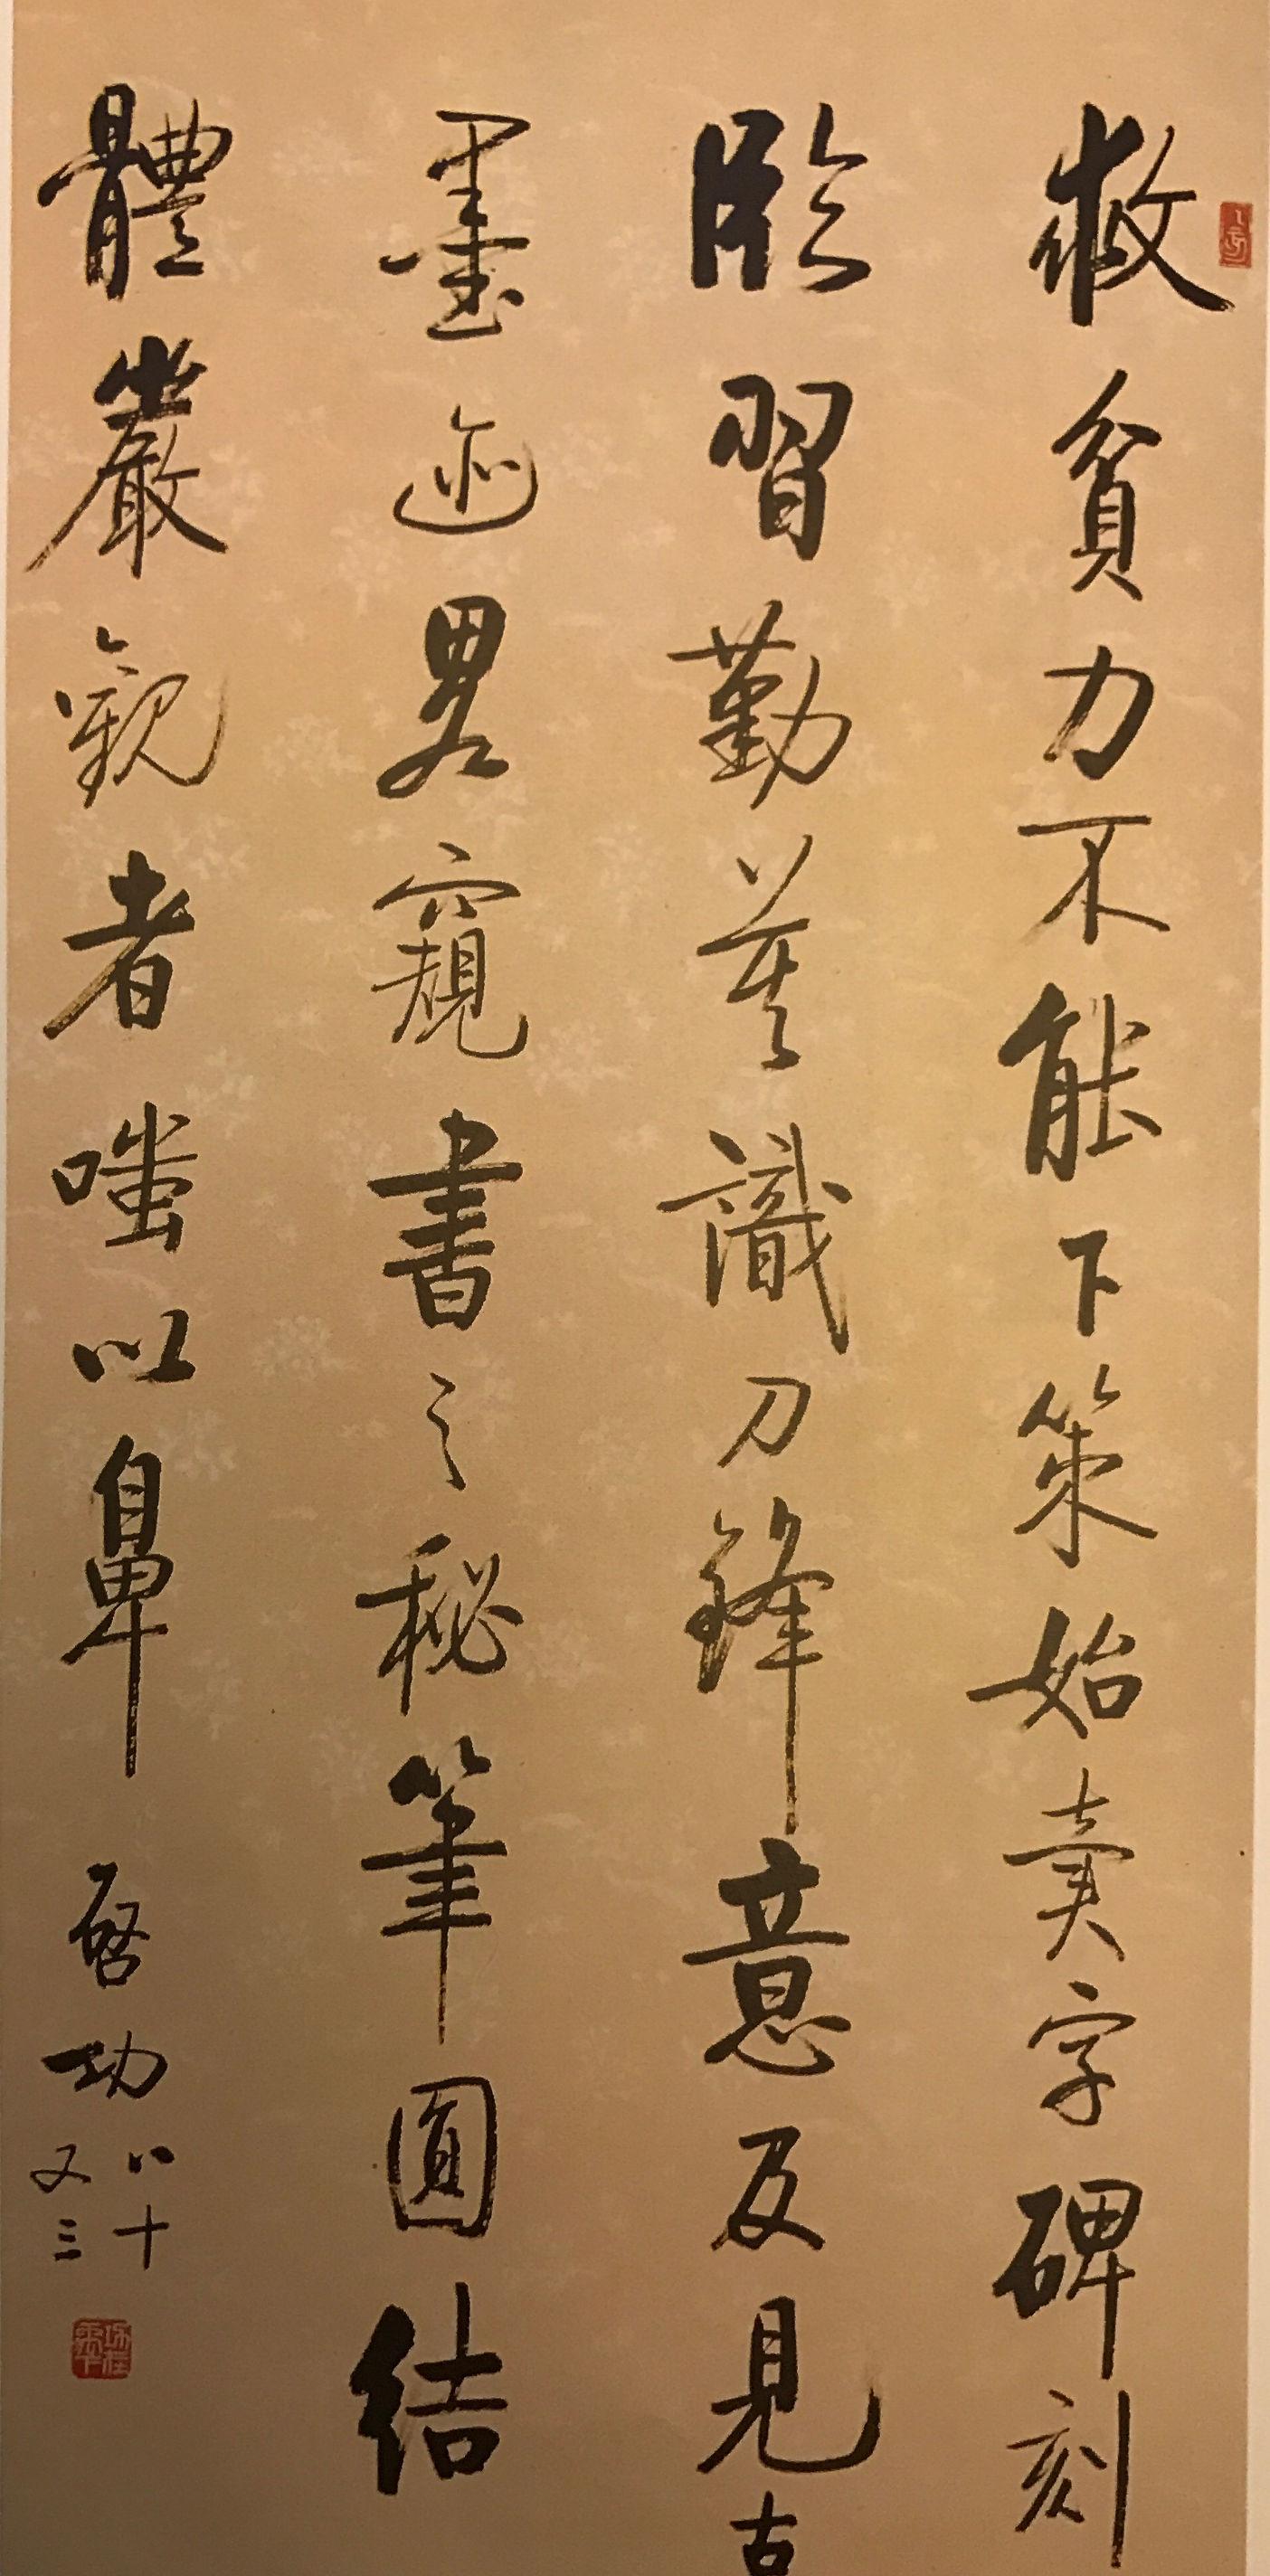 救貧力不能下策始賣字碑刻
臨習勤莫識刀鋒意及見古
墨迹畧窺書之秘筆圓結
體嚴觀者嗤以鼻
啓功
八十
又三